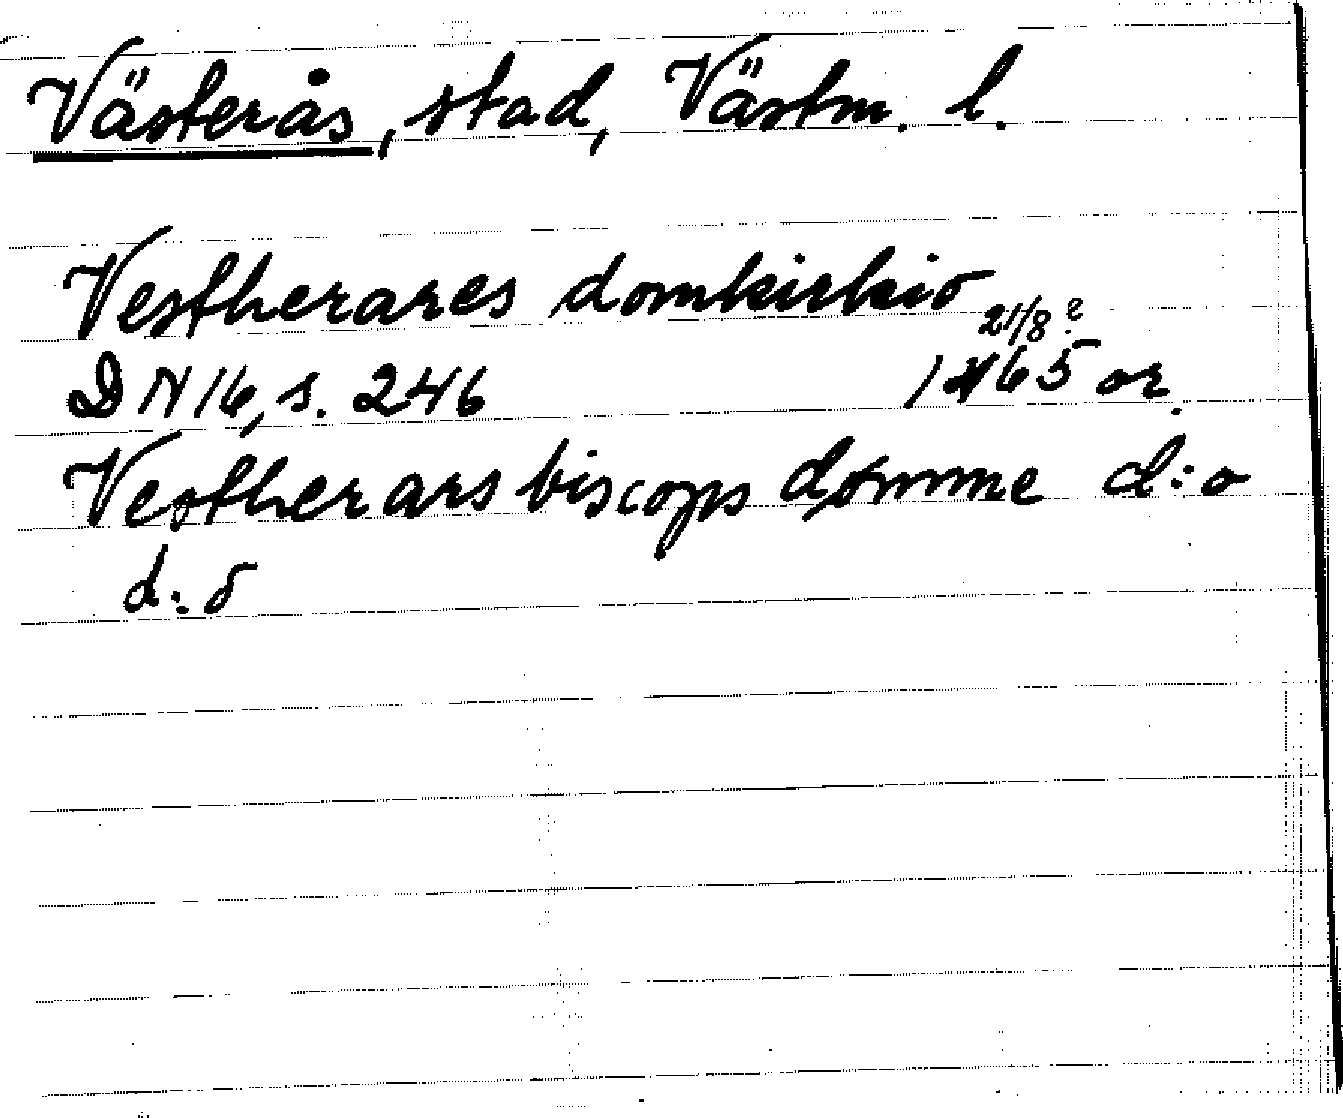 Västerås, stad, Västm. l.
Vestherares domkirkio
21/8 ?
DN 16, s. 246 1465 or.
Vestherars biscops dømme d:o
d:o